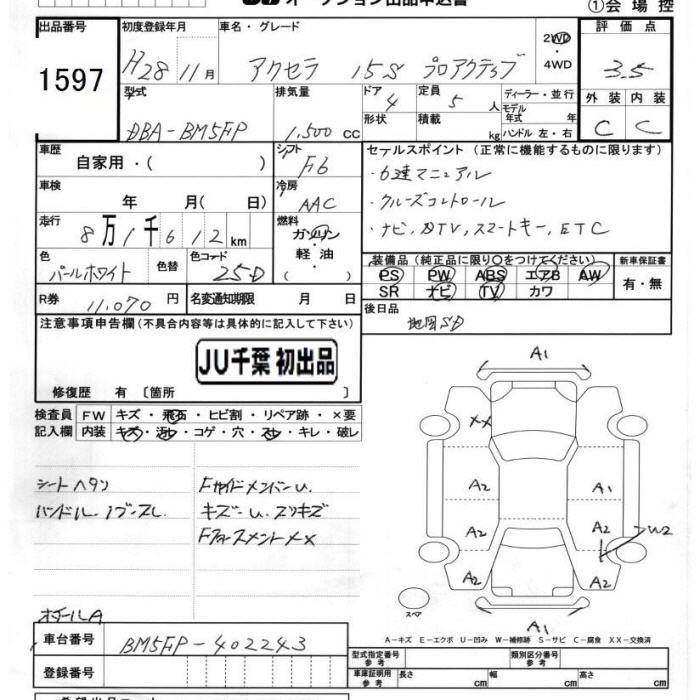 オークション出品申込書
①会場控
出品番号 初度登録年月 車名・グレード 評価点
1597 H28 11月 アクセラ 15S プロアクティブ 2WD・4WD 3.5
型式 排気量 ドア 4 定員 5人 ディーラー・並行 外装 内装
DBA-BM5FP 1,500cc 形状 積載 kg モデル年式 年 ハンドル 左・右 C C
車歴 シフト セールスポイント (正常に機能するものに限ります)
自家用・( ) F6 ・6速マニュアル
車検 冷房 ・クルーズコントロール
年 月(日) AAC ・ナビ、DTV、スマートキー、ETC
走行 燃料
8万1千612km ガソリン・軽油・
装備品(純正品に限り○をつけてください) 新車保証書
色 色替 色コード PS PW ABS エアB AW 有・無
パールホワイト 25D SR ナビ TV カワ
R券 11,070円 名変通知期限 月 日 後日品
地図SD
注意事項申告欄(不具合内容等は具体的に記入して下さい)
JU千葉 初出品
修復歴 有〔箇所 〕
検査員記入欄 FW キズ・飛石・ヒビ割・リペア跡・×要
内装 キズ・汚レ・コゲ・穴・スレ・キレ・破レ
シートヘタリ
キズ
A1
XX
A2 A1
A2 A2 W2
A2 A2
スペア
A1
A-キズ E-エクボ U-凹み W-補修跡 S-サビ C-腐食 XX-交換済
車台番号 BM5FP-402243
型式指定番号 参考 類別区分番号 参考
登録番号
車庫証明用 参考 長さ cm 幅 cm 高さ cm